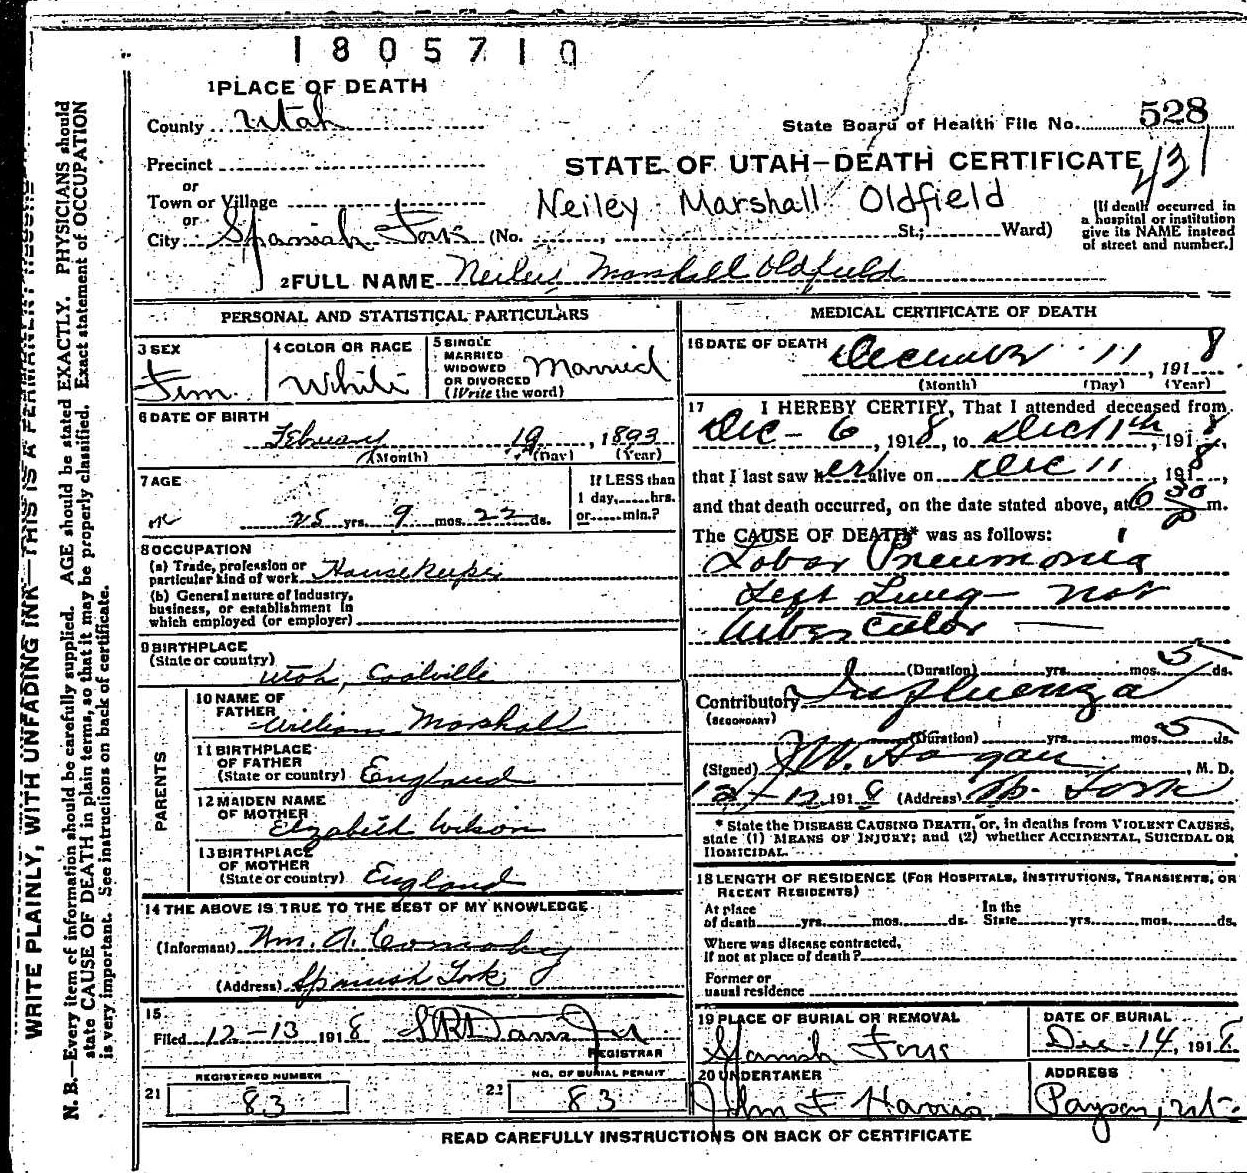 1805710
1 PLACE OF DEATH
County Utah
State Board of Health File No. 528
Precinct
STATE OF UTAH—DEATH CERTIFICATE 431
or
Town or Village
Neiley Marshall Oldfield
or
City Spanish Fork (No. , St.; Ward)
(If death occurred in
a hospital or institution
give its NAME instead
of street and number.)
2 FULL NAME Neiley Marshall Oldfield
PERSONAL AND STATISTICAL PARTICULARS
3 SEX
Fem.
4 COLOR OR RACE
White
5 SINGLE
MARRIED
WIDOWED
OR DIVORCED
(Write the word)
Married
6 DATE OF BIRTH
February 19, 1893
(Month) (Day) (Year)
7 AGE
25 yrs. 9 mos. 22 ds.
If LESS than
1 day,......hrs.
or......min.?
8 OCCUPATION
(a) Trade, profession or
particular kind of work Housekeeper
(b) General nature of Industry,
business, or establishment in
which employed (or employer)
9 BIRTHPLACE
(State or country)
Utah, Coalville
PARENTS
10 NAME OF
FATHER
William Marshall
11 BIRTHPLACE
OF FATHER
(State or country) England
12 MAIDEN NAME
OF MOTHER
Elzabeth Wilson
13 BIRTHPLACE
OF MOTHER
(State or country) England
14 THE ABOVE IS TRUE TO THE BEST OF MY KNOWLEDGE
(Informant) Wm. A.
(Address) Spanish Fork
15
Filed 12-13 1918
REGISTRAR
REGISTERED NUMBER
21 83
NO. OF BURIAL PERMIT
22 83
MEDICAL CERTIFICATE OF DEATH
16 DATE OF DEATH
December 11, 1918
(Month) (Day) (Year)
17 I HEREBY CERTIFY, That I attended deceased from
Dec - 6, 1918, to Dec 11th, 1918,
that I last saw her alive on Dec 11 1918,
and that death occurred, on the date stated above, at 6 30 P m.
The CAUSE OF DEATH* was as follows:
Lobar Pneumonia
Left Lung - not
(Duration) yrs. mos. 5 ds.
Contributory Influenza
(SECONDARY)
(Duration) yrs. mos. 5 ds.
(Signed) J.W. Hagan, M. D.
12-12 1918 (Address) Sp. Fork
* State the DISEASE CAUSING DEATH, or, in deaths from VIOLENT CAUSES,
state (1) MEANS OF INJURY; and (2) whether ACCIDENTAL, SUICIDAL OR
HOMICIDAL.
18 LENGTH OF RESIDENCE (FOR HOSPITALS, INSTITUTIONS, TRANSIENTS, OR
RECENT RESIDENTS)
At place
of death yrs. mos. ds.
In the
State yrs. mos. ds.
Where was disease contracted,
If not at place of death?
Former or
usual residence
19 PLACE OF BURIAL OR REMOVAL
Spanish Fork
DATE OF BURIAL
Dec 14, 1918
20 UNDERTAKER
John F Harris
ADDRESS
Payson, Ut.
READ CAREFULLY INSTRUCTIONS ON BACK OF CERTIFICATE
WRITE PLAINLY, WITH UNFADING INK—THIS IS A PERMANENT RECORD
N. B.—Every item of information should be carefully supplied. AGE should be stated EXACTLY. PHYSICIANS should
state CAUSE OF DEATH in plain terms, so that it may be properly classified. Exact statement of OCCUPATION
is very important. See instructions on back of certificate.